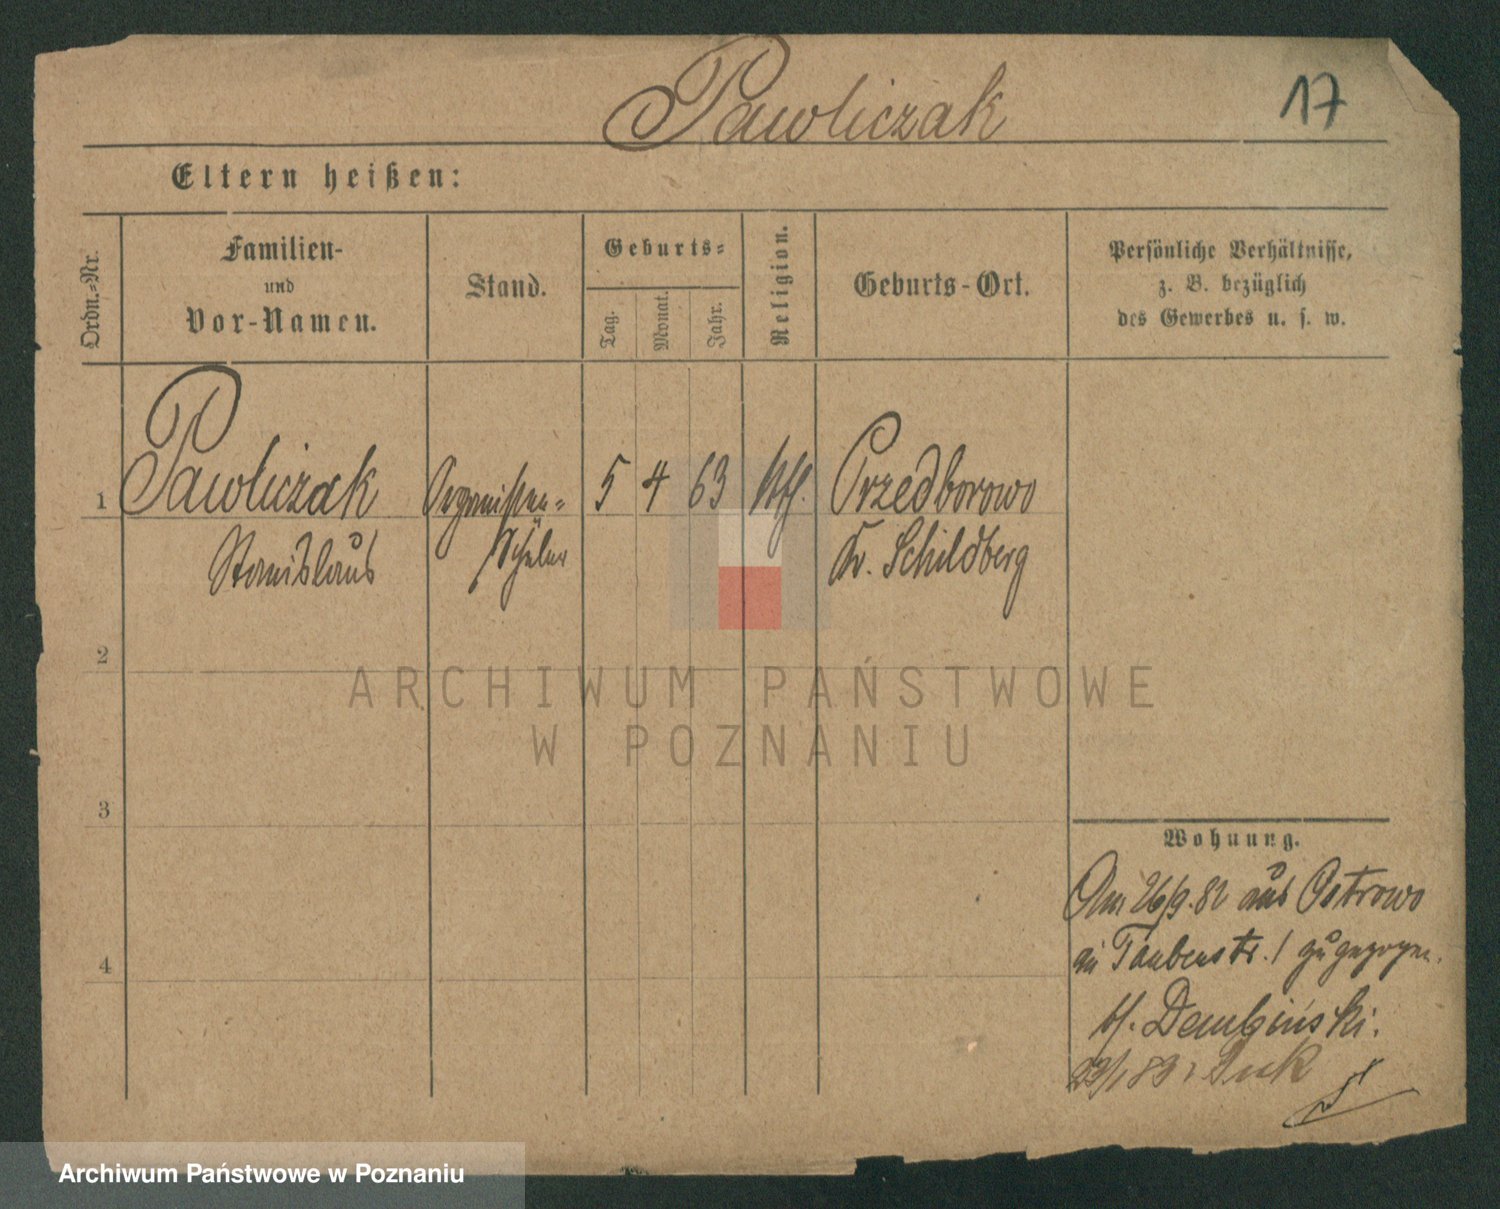 Pawliczak
17
Eltern heißen:
Ordn.-Nr.
Familien-
und
Vor-Namen.
Stand.
Geburts-
Tag.
Monat.
Jahr.
Religion.
Geburts-Ort.
Persönliche Verhältnisse,
z. B. bezüglich
des Gewerbes u. s. w.
1 Pawliczak Organisten- 5 4 63 kth. Przedborowo
Stanislaus Schüler Kr. Schildberg
2
3
4
Wohnung.
Am 26/9.82 aus Ostrowo
in Taubenstr. 1 zugezogen.
bf. Dembiński.
23/1 83
ARCHIWUM PAŃSTWOWE
W POZNANIU
Archiwum Państwowe w Poznaniu